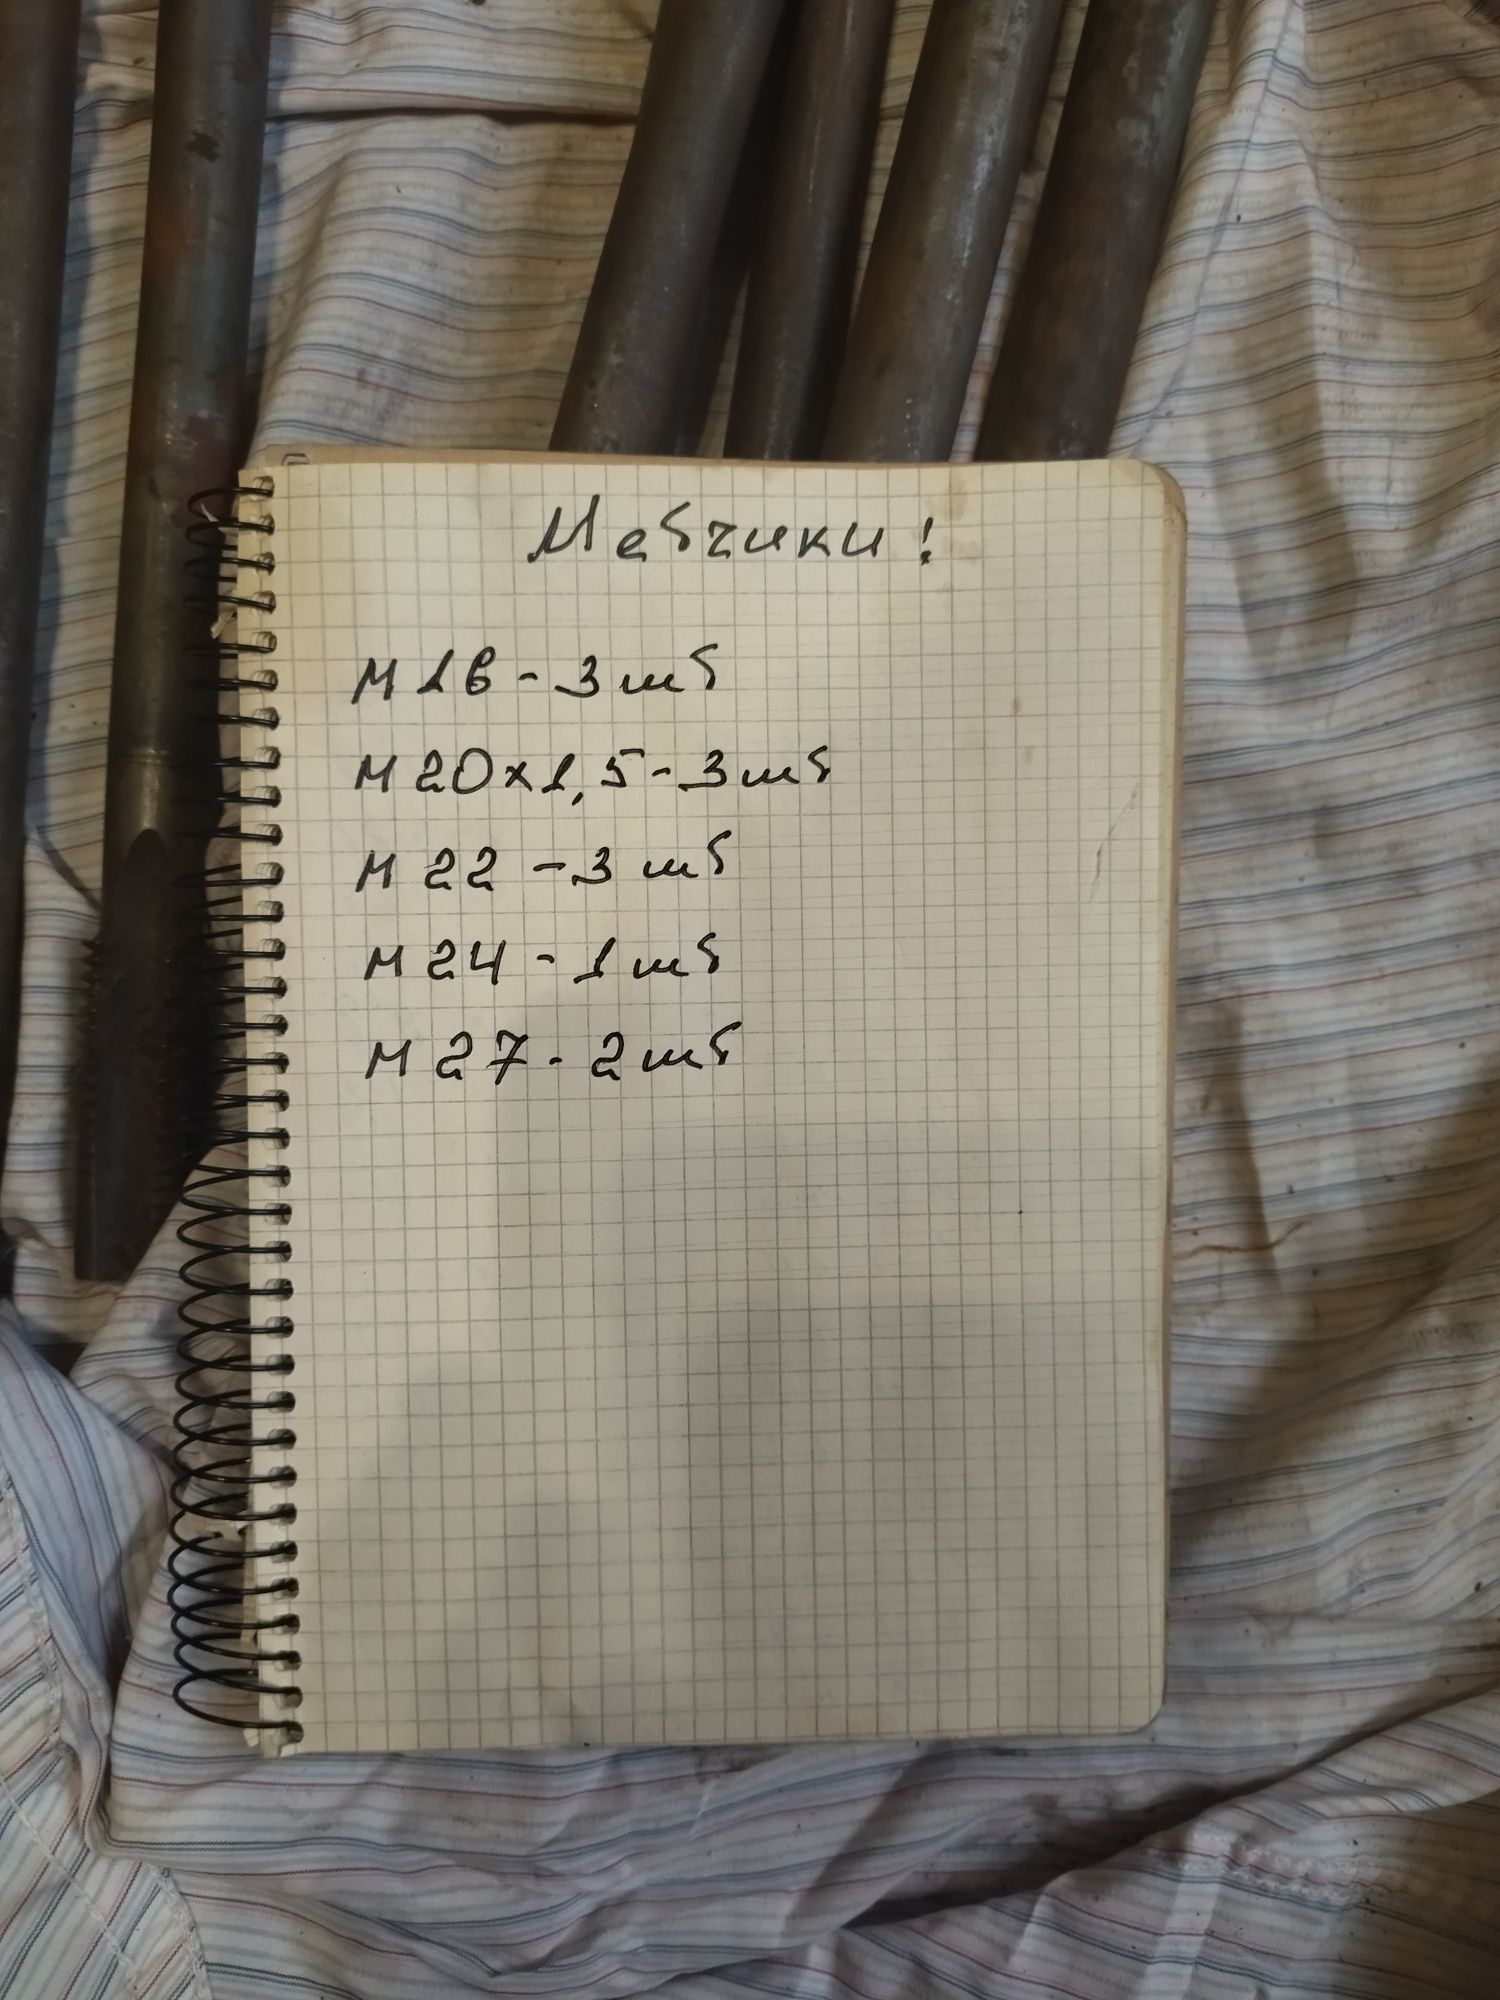 Метчики!
М 16 - 3 шт
М 20х1,5 - 3 шт
М 22 - 3 шт
М 24 - 1 шт
М 27 - 2 шт